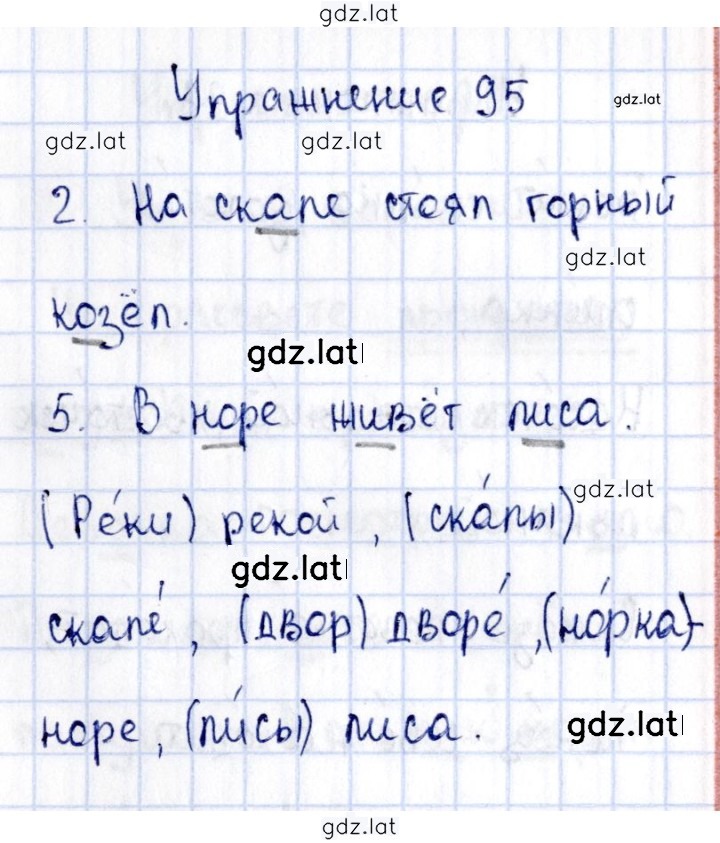 gdz.lat
Упражнение 95
gdz.lat
gdz.lat gdz.lat
2. На скале стоял горный
gdz.lat
козёл.
gdz.lat
5. В норе живёт лиса.
(Ре́ки) рекой, (ска́лы)
gdz.lat
gdz.lat
скале́, (двор) дворе́, (но́рка)-
норе, (ли́сы) лиса.
gdz.lat
gdz.lat